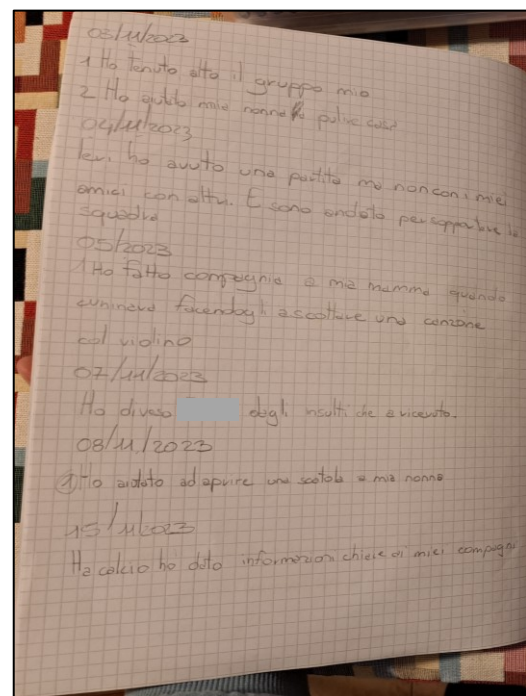 03/11/2023
1 Ho tenuto alto il gruppo mio
2 Ho aiutato mia nonna pulire casa
04/11/2023
Ieri ho avuto una partita ma non con i miei
amici con altri. E sono andato per sopportare la
squadra
05/2023
1 Ho fatto compagnia a mia mamma quando
cuninava facendogli ascoltare una canzone
col violino
07/11/2023
Ho diveso degli insulti che a ricevuto.
08/11/2023
1 Ho aiutato ad aprire una scatola a mia nonna
15/11/2023
Ha calcio ho dato informazioni chiare ai miei compagni